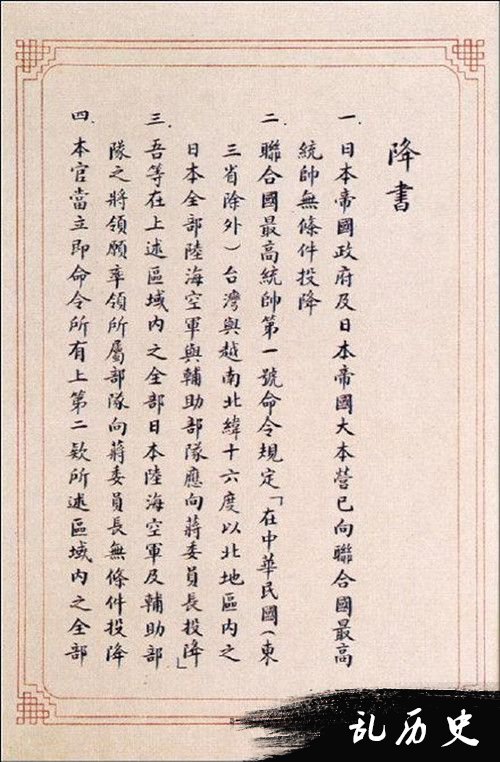 降書
一.日本帝國政府及日本帝國大本營已向聯合國最高
統帥無條件投降
二.聯合國最高統帥第一號命令規定「在中華民國(東
三省除外)台灣與越南北緯十六度以北地區內之
日本全部陸海空軍與輔助部隊應向蔣委員長投降」
三.吾等在上述區域內之全部日本陸海空軍及輔助部
隊之將領願率領所屬部隊向蔣委員長無條件投降
四.本官當立即命令所有上第二欵所述區域內之全部
乱历史